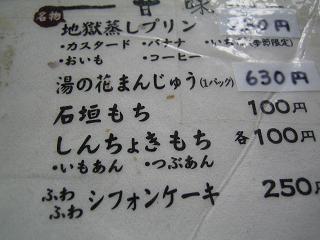 甘味
名物
地獄蒸しプリン 250円
・カスタード ・バナナ ・いちご(季節限定)
・おいも ・コーヒー
湯の花まんじゅう(1パック) 630円
石垣もち 100円
しんちょきもち 各100円
・いもあん ・つぶあん
ふわふわ シフォンケーキ 250円